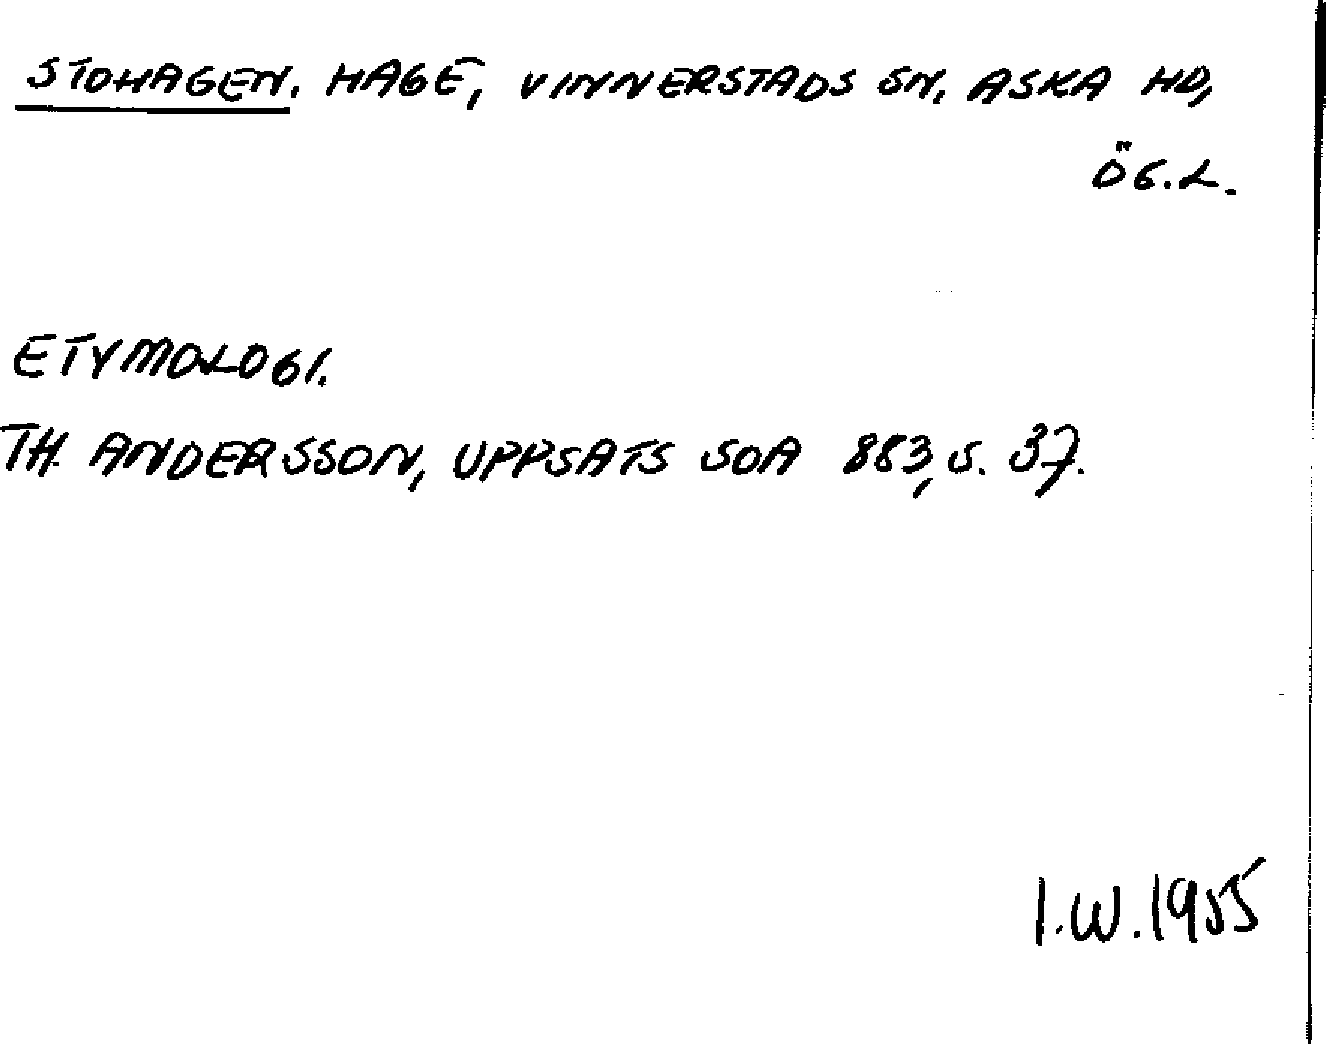 STOHAGEN. HAGE, VINNERSTADS SN, ASKA HD,
ÖG.L.
ETYMOLOGI.
TH. ANDERSSON, UPPSATS SOA 883, S. 37.
I.W.1955